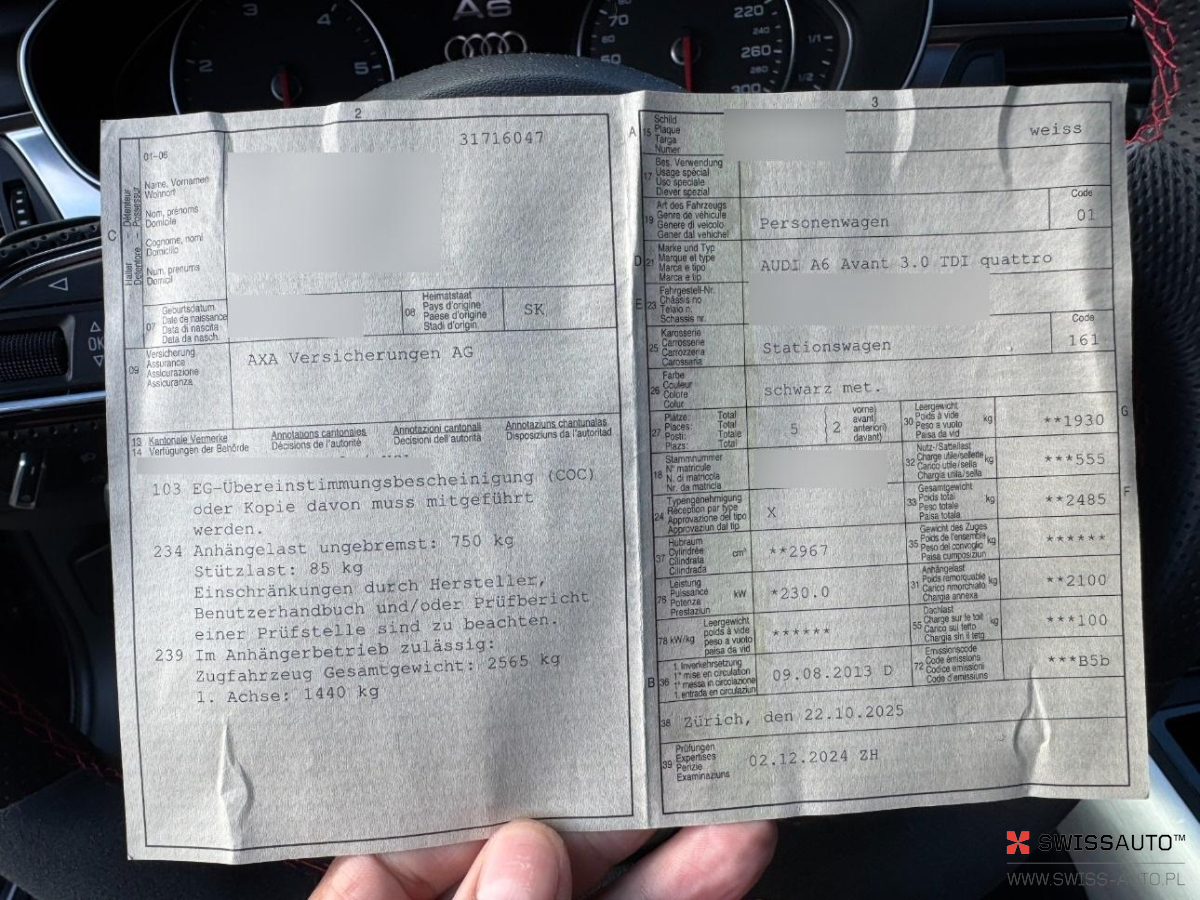 A6
2
3
4
5
70
60
50
220
240
260
280
300
1/1
1/2
OK
2
31716047
C
Halter Détenteur
Detentore Possessur
01-06
Name, Vornamen
Wohnort
Nom, prénoms
Domicile
Cognome, nomi
Domicilio
Num, prenums
Domicil
07
Geburtsdatum
Date de naissance
Data di nascita
Data da nasch.
08
Heimatstaat
Pays d'origine
Paese d'origine
Stadi d'origin
SK
09
Versicherung
Assurance
Assicurazione
Assicuranza
AXA Versicherungen AG
13
14
Kantonale Vermerke
Verfügungen der Behörde
Annotations cantonales
Décisions de l'autorité
Annotazioni cantonali
Decisioni dell'autorità
Annotaziuns chantunalas
Disposiziuns da l'autoritad
103 EG-Übereinstimmungsbescheinigung (COC)
oder Kopie davon muss mitgeführt
werden.
234 Anhängelast ungebremst: 750 kg
Stützlast: 85 kg
Einschränkungen durch Hersteller,
Benutzerhandbuch und/oder Prüfbericht
einer Prüfstelle sind zu beachten.
239 Im Anhängerbetrieb zulässig:
Zugfahrzeug Gesamtgewicht: 2565 kg
1. Achse: 1440 kg
3
A
15
Schild
Plaque
Targa
Numer
weiss
17
Bes. Verwendung
Usage spécial
Uso speciale
Diever spezial
19
Art des Fahrzeugs
Genre de véhicule
Genere di veicolo
Gener dal vehichel
Personenwagen
Code
01
D
21
Marke und Typ
Marque et type
Marca e tipo
Marca e tip
AUDI A6 Avant 3.0 TDI quattro
E
23
Fahrgestell-Nr.
Châssis no
Telaio n.
Schassis nr.
25
Karosserie
Carrosserie
Carrozzeria
Carossaria
Stationswagen
Code
161
26
Farbe
Couleur
Colore
Colur
schwarz met.
27
Plätze: Total
Places: Total
Posti: Totale
Plazs: Total
5
2
vorne)
avant)
anteriori)
davant)
30
Leergewicht
Poids à vide
Peso a vuoto
Paisa da vid
kg
**1930
G
18
Stammnummer
N° matricule
N. di matricola
Nr. da matricla
32
Nutz-/Sattellast
Charge utile/sellette
Carico utile/sella
Chargia utila/sella
kg
***555
24
Typengenehmigung
Réception par type
Approvazione del tipo
Approvaziun dal tip
X
33
Gesamtgewicht
Poids total
Peso totale
Paisa totala
kg
**2485
F
37
Hubraum
Cylindrée
Cilindrata
Cilindrada
cm³
**2967
35
Gewicht des Zuges
Poids de l'ensemble
Peso del convoglio
Paisa cumposiziun
kg
******
76
Leistung
Puissance
Potenza
Prestaziun
kW
*230.0
31
Anhängelast
Poids remorquable
Carico rimorchiato
Chargia annexa
kg
**2100
78 kW/kg
Leergewicht
poids à vide
peso a vuoto
paisa da vid
******
55
Dachlast
Charge sur le toit
Carico sul tetto
Chargia sin il tetg
kg
***100
B
36
1. Inverkehrsetzung
1re mise en circulation
1a messa in circolazione
1. entrada en circulaziun
09.08.2013 D
72
Emissionscode
Code émissions
Codice emissioni
Code d'emissiuns
***B5b
38 Zürich, den 22.10.2025
39
Prüfungen
Expertises
Perizie
Examinaziuns
02.12.2024 ZH
SWISSAUTO™
WWW.SWISS-AUTO.PL